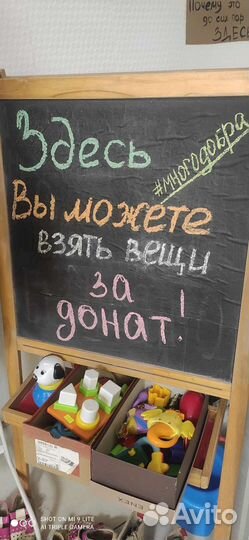 Почему это
до сих пор
ЗДЕСЬ
Здесь
#многодобра
Вы можете
взять вещи
за
донат!
SHOT ON MI 9 LITE
AI TRIPLE CAMERA
Avito